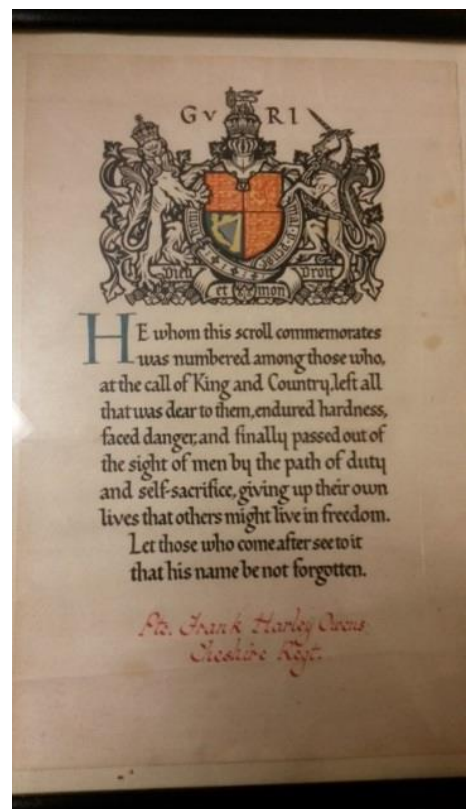 G V R I
Dieu et mon Droit
HE whom this scroll commemorates
was numbered among those who,
at the call of King and Country, left all
that was dear to them, endured hardness,
faced danger, and finally passed out of
the sight of men by the path of duty
and self-sacrifice, giving up their own
lives that others might live in freedom.
Let those who come after see to it
that his name be not forgotten.
Pte. Frank Harley Owens
Cheshire Regt.